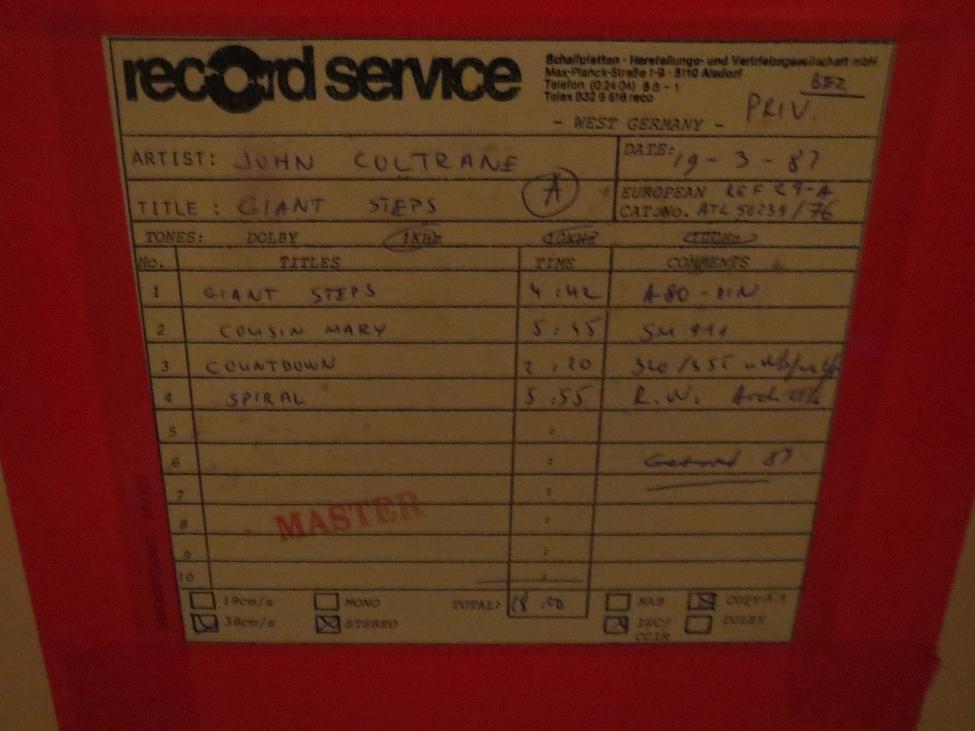 record service
Schallplatten - Herstellungs- und Vertriebsgesellschaft mbH
Max-Planck-Straße 1-9 · 5110 Alsdorf
Telefon (0 24 04) 5 8 - 1
Telex 832 9 616 reco
PRIV.
- WEST GERMANY -
ARTIST: JOHN COLTRANE
DATE: 19-3-87
TITLE : GIANT STEPS
A
EUROPEAN
CAT.NO. ATL 50239/76
TONES: DOLBY 1KHz 10KHz
No. TITLES TIME COMMENTS
1 GIANT STEPS 4:42 A80
2 COUSIN MARY 5:45
3 COUNTDOWN 2:20
4 SPIRAL 5:55 R.W.
5 :
6 : 87
7 :
8 :
MASTER
9 :
10 :
19cm/s MONO TOTAL: 18:00 NAB COPY
38cm/s STEREO IEC/CCIR DOLBY